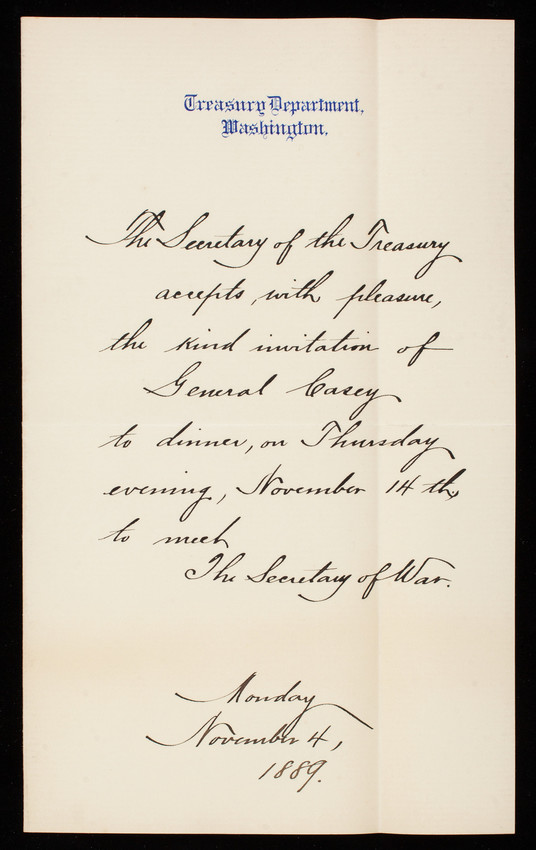 Treasury Department,
Washington,
The Secretary of the Treasury
accepts, with pleasure,
the kind invitation of
General Casey
to dinner, on Thursday
evening, November 14th,
to meet
The Secretary of War.
Monday
November 4,
1889.